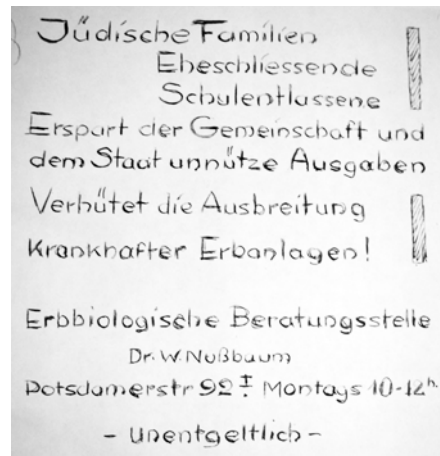 Jüdische Familien
Eheschliessende
Schulentlassene
Erspart der Gemeinschaft und
dem Staat unnütze Ausgaben
Verhütet die Ausbreitung
Krankhafter Erbanlagen!
Erbbiologische Beratungsstelle
Dr. W. Nußbaum
Potsdamerstr 92 I. Montags 10-12h.
- Unentgeltlich -